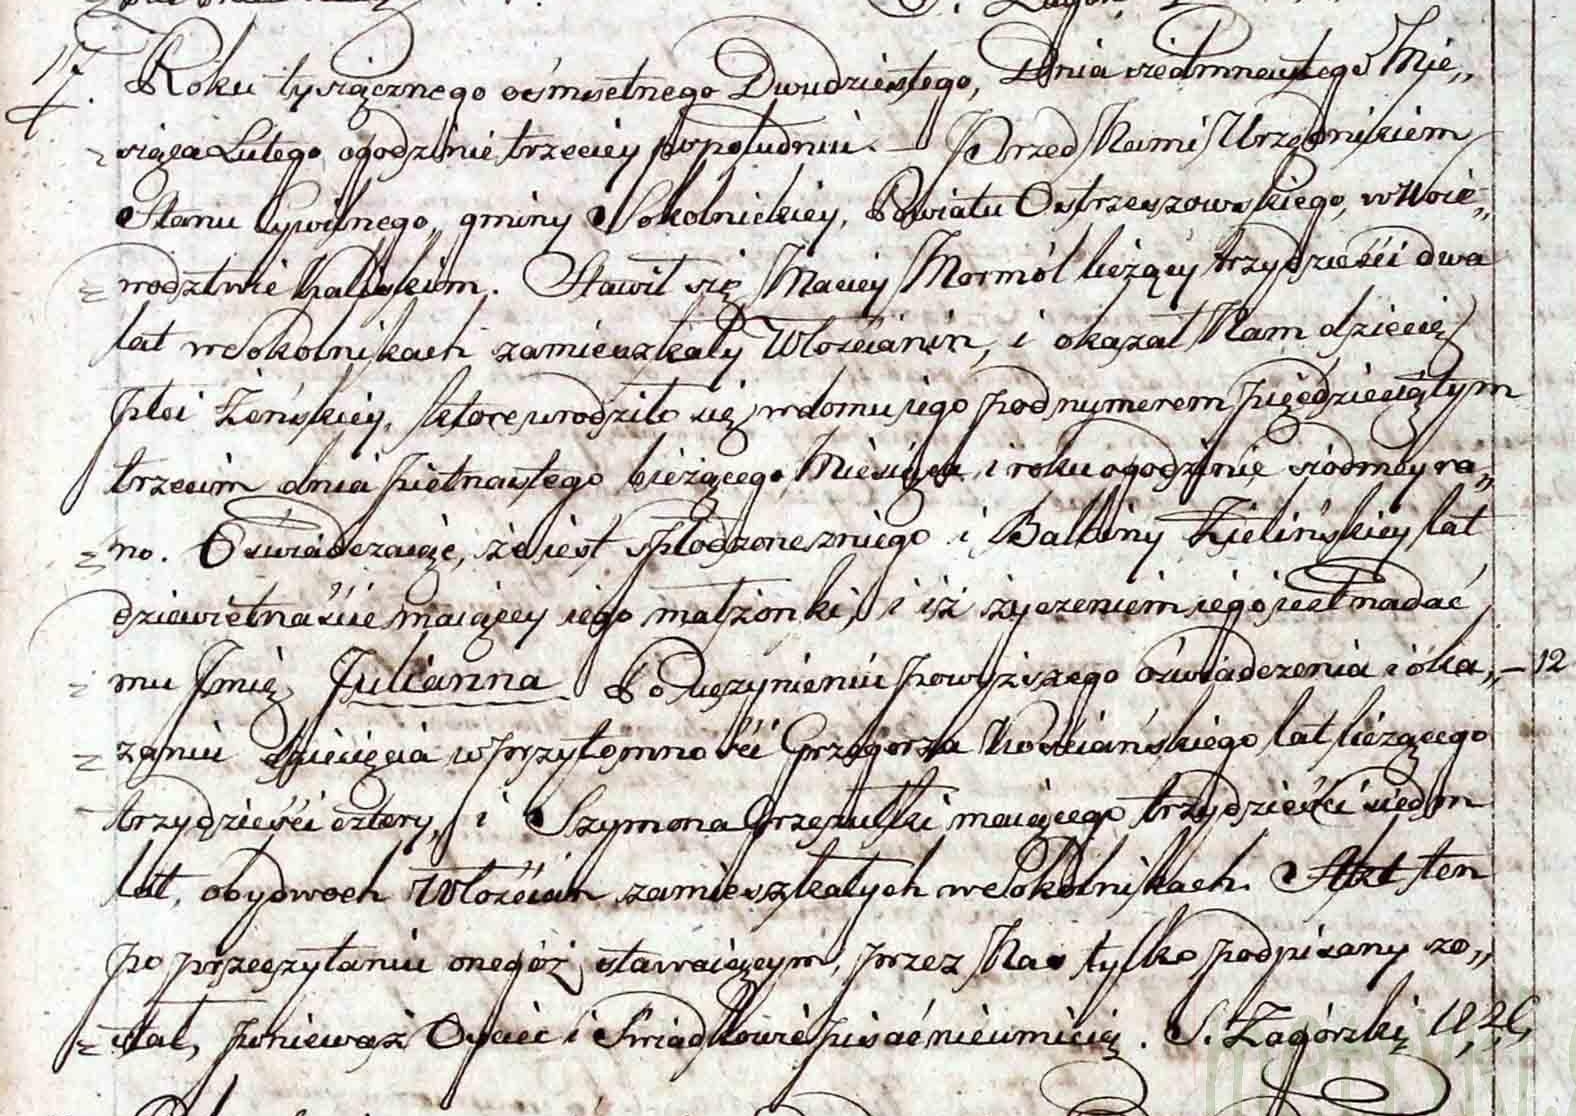 17. Roku tysiącznego ośmsetnego Dwudziestego, Dnia siedmnastego Mie„
siąca Lutego ogodzinie trzeciey popołudniu. — Przed Nami Urzędnikiem
Stanu Cywilnego, gminy Sokolnickiey, Powiatu Ostrzeszowskiego, w Woie„
wodztwie Kaliskim. Stawił się Maciey Marmól liczący trzydzieści dwa
lat w Sokolnikach zamieszkały Włościanin, i okazał Nam dziecię
płci Żeńskiey, ktore urodziło się w domu iego pod numerem pięćdziesiątym
trzecim dnia piętnastego bieżącego Miesiąca i roku ogodzinie siódmey ra„
no. Oświadczaiąc, że iest spłodzone zniego i Balbiny Zielińskiey lat
dziewiętnaście maiącey iego małżonki, i iż życzeniem iego iest nadać
mu Imię Julianna Po uczynieniu powyższego oświadczenia i oka„ – 12
zaniu dziecięcia w przytomności Grzegorza Kościańskiego lat liczącego
trzydzieści cztery, i Szymona Grzesulki maiącego trzydzieści siedm
lat, obydwoch Włościan zamieszkałych w Sokolnikach. Akt ten
po przeczytaniu onegóż stawaiącym, przez Nas tylko podpisany zo„
stał, ponieważ Oyciec i Świadkowie pisać nieumieią. S. Zagórski